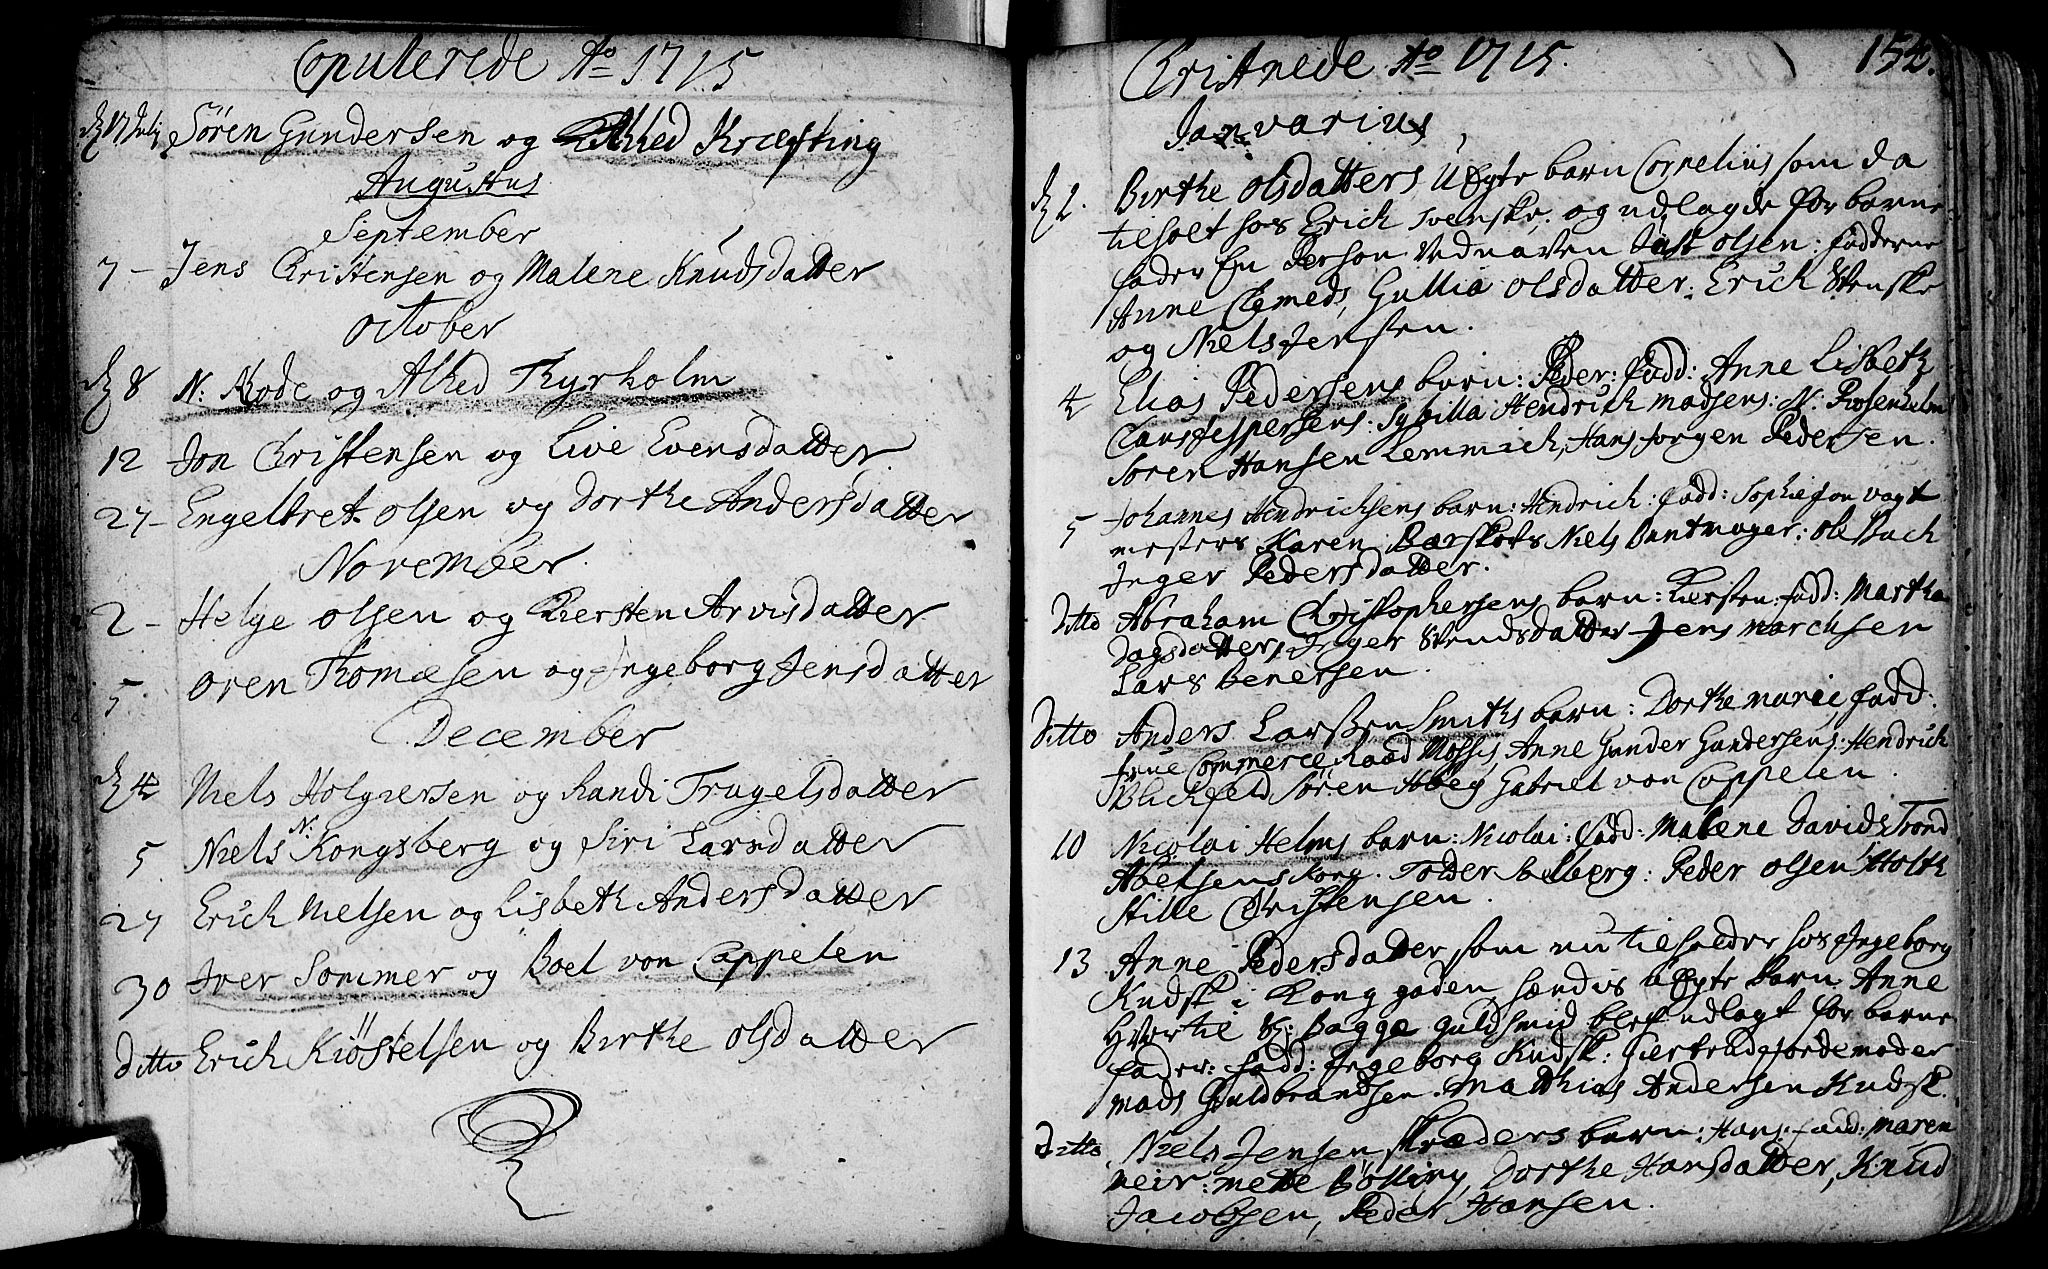 Copulerede Ao 1715
d 17 Julij Søren Gundersen og Alhed Kræfting
Augustus
September
7 - Jens Christensen og Malene Knudsdatter
October
d 8 N: Kode og Alhed Thyrholm
12 Jon Christensen og Live Evensdatter
27 - Engelbret Olsen og Dorthe Andersdatter
November
2 - Helge Olsen og Kiersten Arvisdatter
5. Oren Thomæsen og Ingeborg Jensdatter
December
d 4 Niels Holgersen og Randi Trugelsdatter
5 Niels N: Kongsberg og Siri Larsdatter
27 Erich Nielsen og Lisbeth Andersdatter
30 Iver Sommer og Boel von Cappelen
Ditto Erich Kiøstelsen og Birthe Olsdatter
154.
Christnede Ao 1715.
Janvarius
d 2. Birthe Olsdatters Uægte barn Cornelius som da
tilholt hos Erich Svenske: og udlagde for barne
fader En Person ved naven Just Olsen: fadderne
Anne Clemeds, Gullia Olsdatter: Erich Svenske
og Niels Jensen.
4 Elias Pedersens barn: Peder: fadd: Anne Lisbeth
Claus Jespersens: Sybilla Hendrich Madsens: N: Rosenholm
Søren Hansen Lemmich, Hans Jørgen Pedersen.
5 Johannes Hendrichsens barn: Hendrich: fadd: Sophie fon vagt
mesters Karen Barskiers Niels Buntmager: Ole Bach
Inger Pedersdatter.
Ditto Abraham Christophersens barn: Kiersten: fadd: Martha
Dagsdatter, Inger Svendsdatter Jens Marchsen
Lars Bentsen.
Ditto Anders Larssen Smiths barn: Dorthe Marie fadd:
frue Commerce Raad Mossis, Anne Gunder Gundersens: Hendrich
Blickfeld Søren Høeg Gabriel von Cappelen.
10 Nicolai Helms barn: Nicolai: fadd: Malene Davids Trond
Abelsens Kong. Tolder Belberg: Peder Olsen Holth
Stille Christensen.
13 Anne Pedersdatter som nu tilholder hos Ingeborg
Knudsk i Kong gaden hændis uægte barn Anne
Hvortil K: Bagge guldsmid blef udlagt for barne
fader: fadd: Ingeborg Knudsk: Giertrud Jordemoder
Mads Guldbrandsen. Matthias Andersen Knudsk.
Ditto Niels Jensen Skræders barn: Hans: fadd: Maren
Meir: Mette Bølling, Dorthe Hansdatter, Knud
Jacobsen, Peder Hansen.